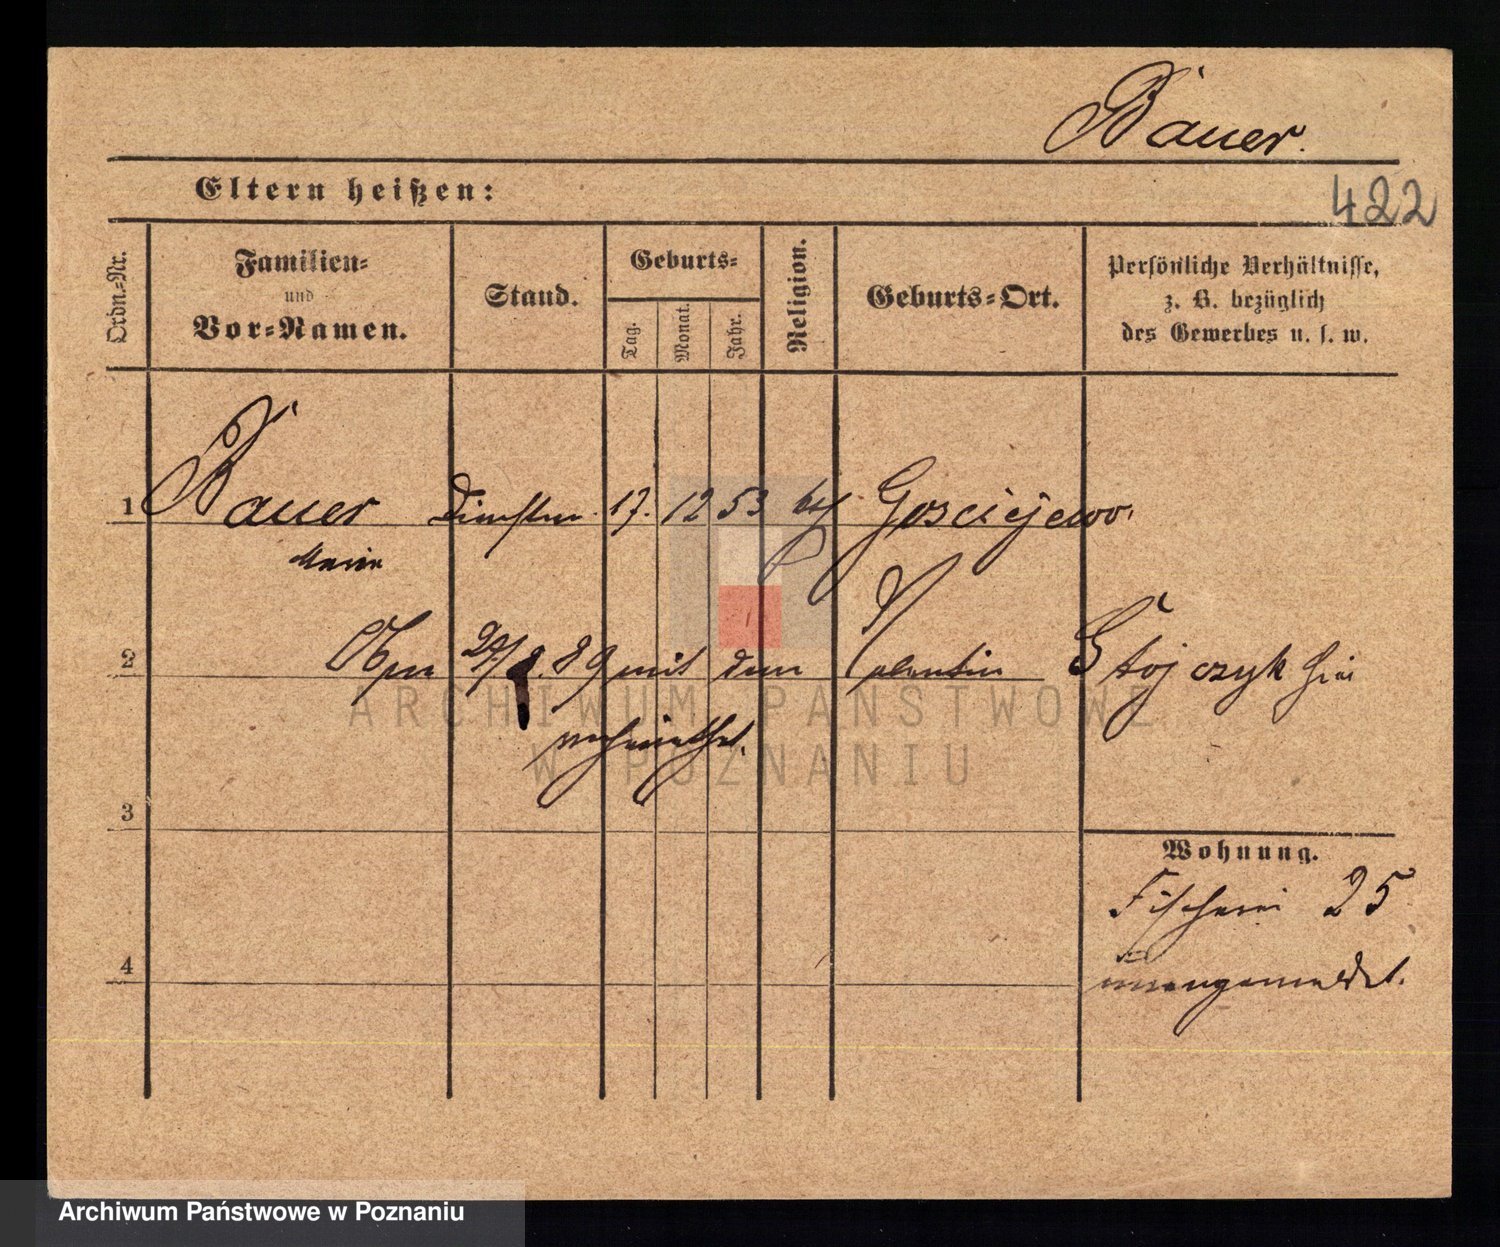 Bauer.
422
Eltern heißen:
Ordn.-Nr.
Familien-
und
Vor-Namen.
Stand.
Geburts-
Tag.
Monat.
Jahr.
Religion.
Geburts-Ort.
Persönliche Verhältnisse,
z. B. bezüglich
des Gewerbes u. s. w.
1 Bauer 17. 12 53 Gosciejewo.
Marie
2 89 mit dem Valentin Stojczyk hier
verheirathet.
3
Wohnung.
Fischerei 25
4
unangemeldet.
ARCHIWUM PAŃSTWOWE
W POZNANIU
Archiwum Państwowe w Poznaniu